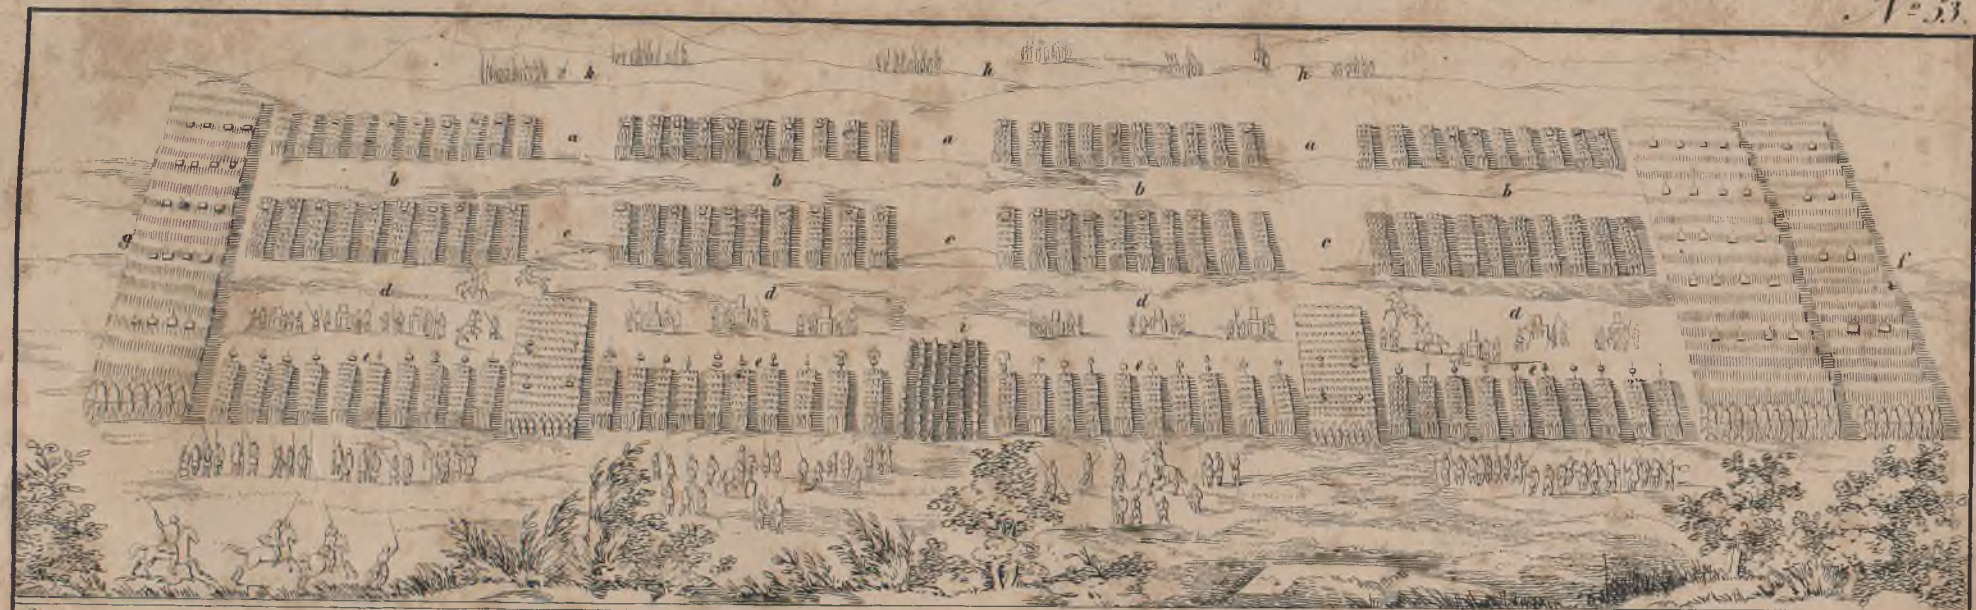 Nº 53.
h h h
a a a
b b b b
g c c c f
d d d d
i
e e e e